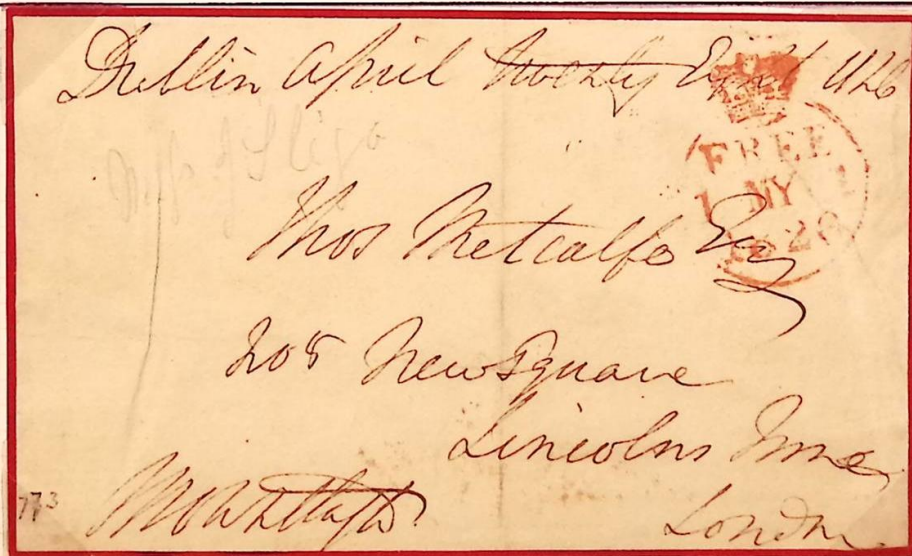 Dublin April twenty Eight 1826
FREE
1 MY 1
1826
Thos Metcalfe Esq
New Square
Lincolns Inne
London
773